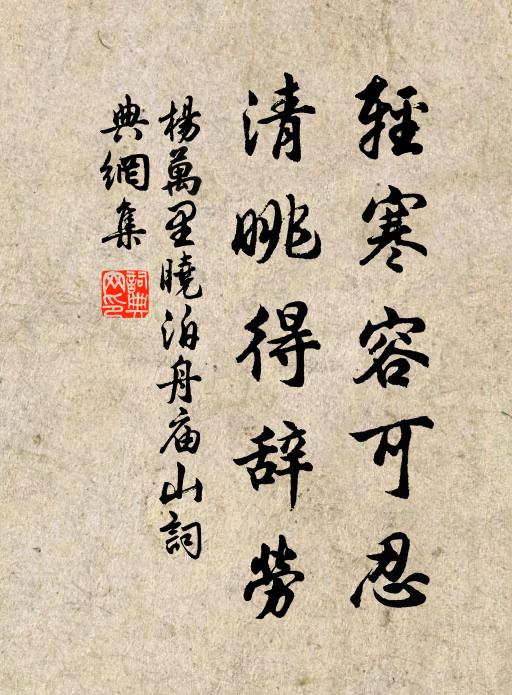 輕寒容可忍
清眺得辞勞
楊萬里曉泊舟庙山詞
典網集
詞典网印